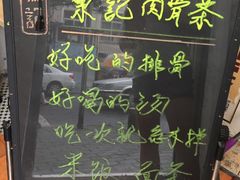 朱記肉骨茶
好吃的排骨
好喝的汤
吃一次就忘不掉
米饭 油条